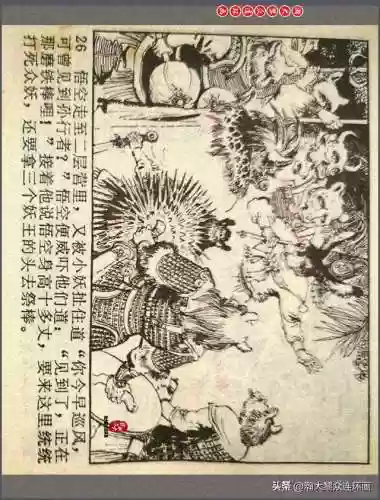 26 悟空走至二层营里，又被小妖扯住道“你今早巡风，
可曾见到孙行者？”悟空便威吓他们道：“见到了，正在
那磨铁棒哩！”接着他说悟空身高十多丈，要来这里统统
打死众妖，还要拿三个妖王的头去祭棒。
头条 众连环画